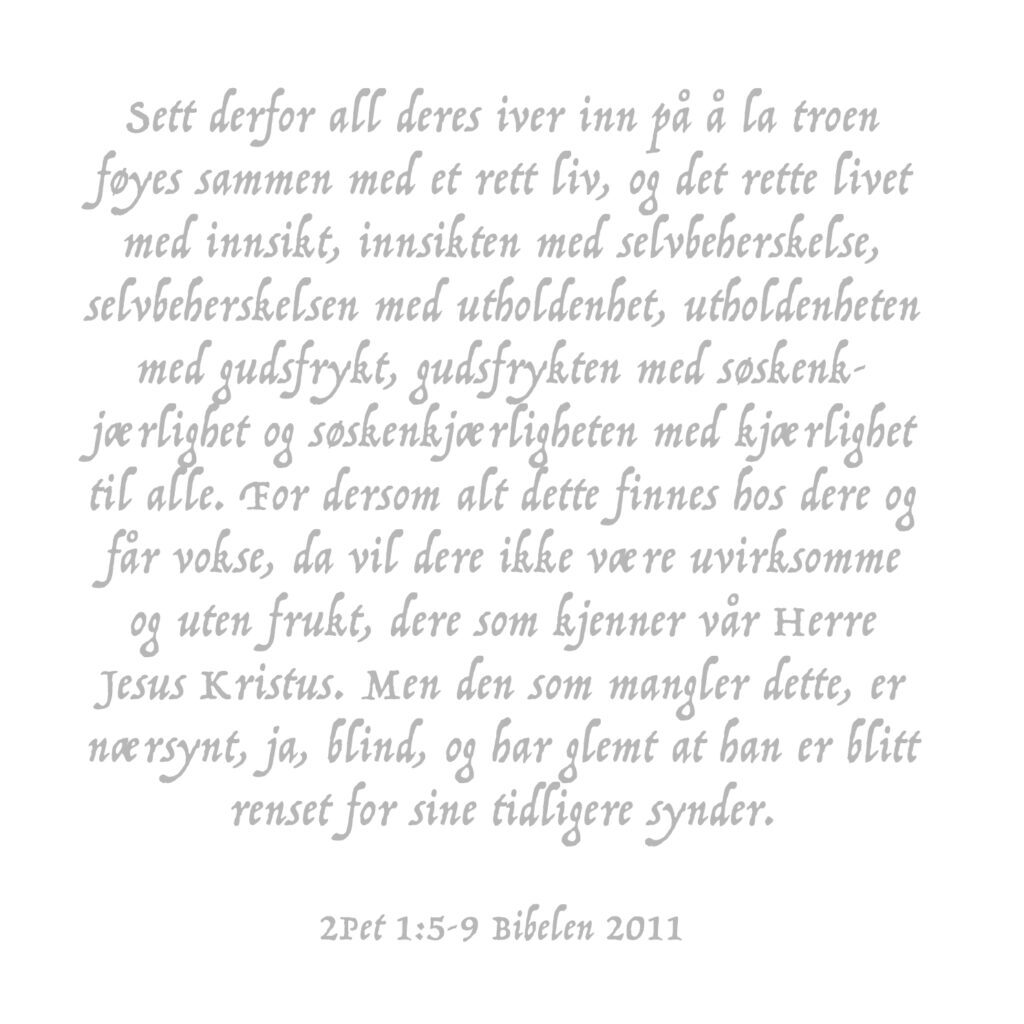 Sett derfor all deres iver inn på å la troen
føyes sammen med et rett liv, og det rette livet
med innsikt, innsikten med selvbeherskelse,
selvbeherskelsen med utholdenhet, utholdenheten
med gudsfrykt, gudsfrykten med søskenk-
jærlighet og søskenkjærligheten med kjærlighet
til alle. For dersom alt dette finnes hos dere og
får vokse, da vil dere ikke være uvirksomme
og uten frukt, dere som kjenner vår Herre
Jesus Kristus. Men den som mangler dette, er
nærsynt, ja, blind, og har glemt at han er blitt
renset for sine tidligere synder.
2Pet 1:5-9 Bibelen 2011